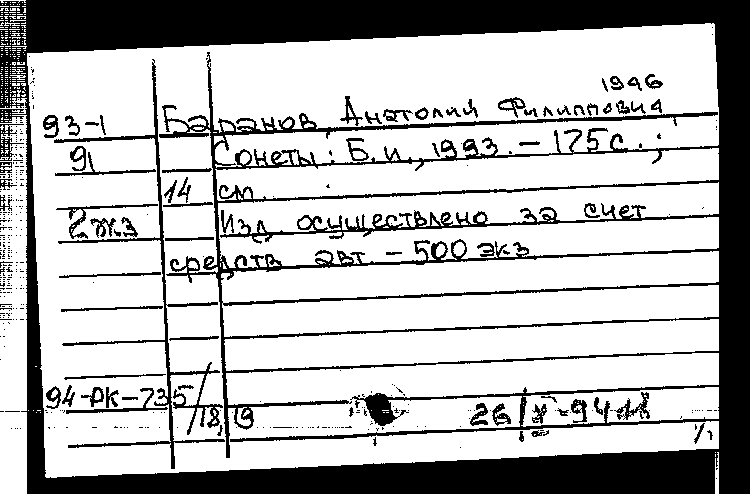 1946
93-1 Баранов, Анатолий Филиппович
91 Сонеты: Б.и., 1993. - 175 с. ;
14 см.
2 экз Изд. осуществлено за счет
средств авт - 500 экз
94-РК-735/18,19
26/X-94